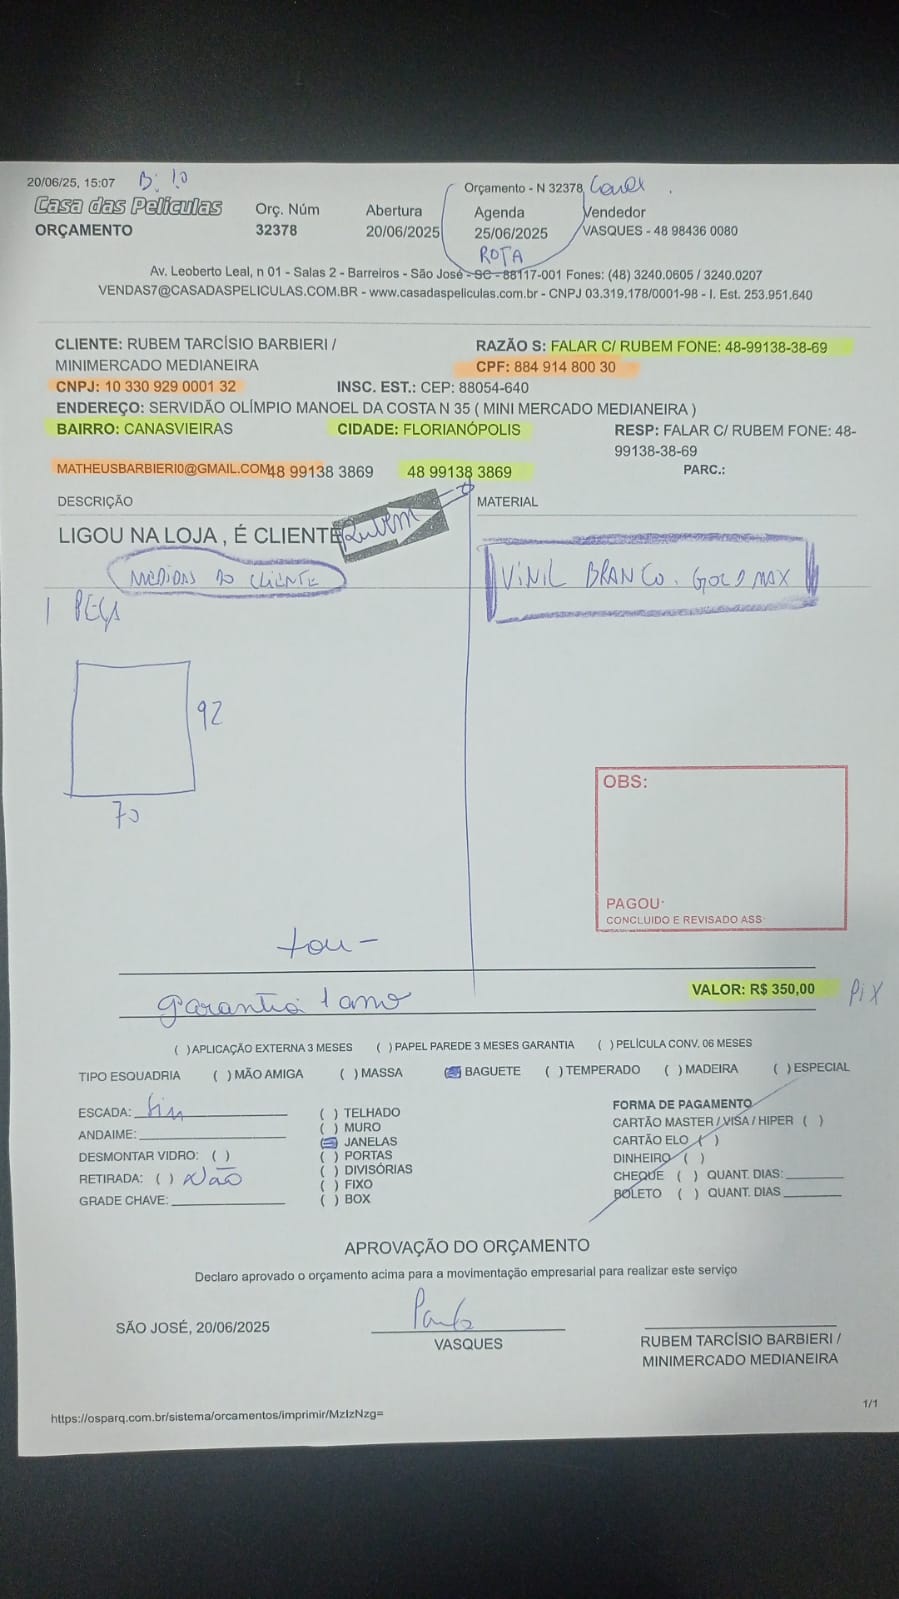 20/06/25, 15:07
Orçamento - N 32378
Casa das Peliculas
ORÇAMENTO
Orç. Núm
32378
Abertura
20/06/2025
Agenda
25/06/2025
ROTA
Vendedor
VASQUES - 48 98436 0080
Av. Leoberto Leal, n 01 - Salas 2 - Barreiros - São José - SC - 88117-001 Fones: (48) 3240.0605 / 3240.0207
VENDAS7@CASADASPELICULAS.COM.BR - www.casadaspeliculas.com.br - CNPJ 03.319.178/0001-98 - I. Est. 253.951.640
CLIENTE: RUBEM TARCÍSIO BARBIERI /
MINIMERCADO MEDIANEIRA
RAZÃO S: FALAR C/ RUBEM FONE: 48-99138-38-69
CPF: 884 914 800 30
CNPJ: 10 330 929 0001 32
INSC. EST.: CEP: 88054-640
ENDEREÇO: SERVIDÃO OLÍMPIO MANOEL DA COSTA N 35 ( MINI MERCADO MEDIANEIRA )
BAIRRO: CANASVIEIRAS
CIDADE: FLORIANÓPOLIS
RESP: FALAR C/ RUBEM FONE: 48-
99138-38-69
MATHEUSBARBIERI0@GMAIL.COM
48 99138 3869
48 99138 3869
PARC.:
DESCRIÇÃO
MATERIAL
LIGOU NA LOJA , É CLIENTE
Rubem
MEDIDAS DO CLIENTE
VINIL BRANCO. GOLD MAX
1 PEÇA
92
70
OBS:
PAGOU:
CONCLUIDO E REVISADO ASS
garantia 1 ano
VALOR: R$ 350,00
PiX
( )APLICAÇÃO EXTERNA 3 MESES ( )PAPEL PAREDE 3 MESES GARANTIA ( )PELÍCULA CONV. 06 MESES
TIPO ESQUADRIA ( )MÃO AMIGA ( )MASSA ( )BAGUETE ( )TEMPERADO ( )MADEIRA ( )ESPECIAL
ESCADA: Sim
ANDAIME:
DESMONTAR VIDRO: ( )
RETIRADA: ( ) Não
GRADE CHAVE:
( ) TELHADO
( ) MURO
( ) JANELAS
( ) PORTAS
( ) DIVISÓRIAS
( ) FIXO
( ) BOX
FORMA DE PAGAMENTO
CARTÃO MASTER / VISA / HIPER ( )
CARTÃO ELO ( )
DINHEIRO ( )
CHEQUE ( ) QUANT. DIAS:
BOLETO ( ) QUANT. DIAS
APROVAÇÃO DO ORÇAMENTO
Declaro aprovado o orçamento acima para a movimentação empresarial para realizar este serviço
SÃO JOSÉ, 20/06/2025
VASQUES
RUBEM TARCÍSIO BARBIERI /
MINIMERCADO MEDIANEIRA
https://osparq.com.br/sistema/orcamentos/imprimir/MzIzNzg=
1/1